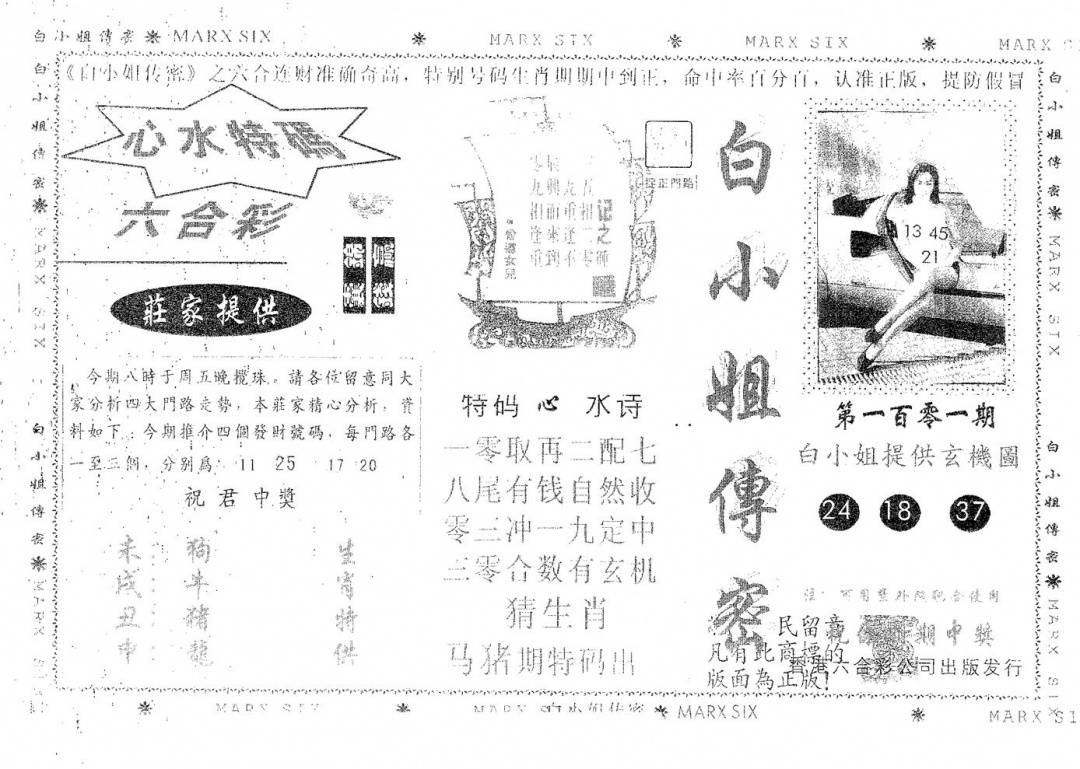 白小姐傳密 ※ MARX SIX ※ MARX SIX ※ MARX SIX ※ MARX
《白小姐传密》之六合连财准确奇高，特别号码生肖期期中到正，命中率百分百，认准正版，提防假冒
心水特碼
六合彩
莊家提供
今期八時于周五晚攪珠。請各位留意同大
家分析四大門路走勢，本莊家精心分析，資
料如下：今期推介四個發財號碼，每門路各
一至三個，分别爲：11 25 17 20
祝君中獎
未：狗 生
戌：牛 肖
丑：豬 特
申：龍 供
记之
九 九五
相面重相
逢來逢二
重到不零
特码心水诗
一零取再二配七
八尾有钱自然收
零三冲一九定中
三零合数有玄机
猜生肖
马猪期特码出
白小姐傳密
民留意
凡有此商標的
版面為正版！
13 45
21
第一百零一期
白小姐提供玄機圖
24 18 37
期中獎
香港六合彩公司出版发行
白小姐傳密 ※ MARX SIX
白小姐傳密 ※ MARX
白小姐傳密 ※ MARX STX
白小姐傳密 ※ MARX SIX
MARX SIX ※ MARX SIX 白小姐传密 ※ MARX SIX ※ MARX SI